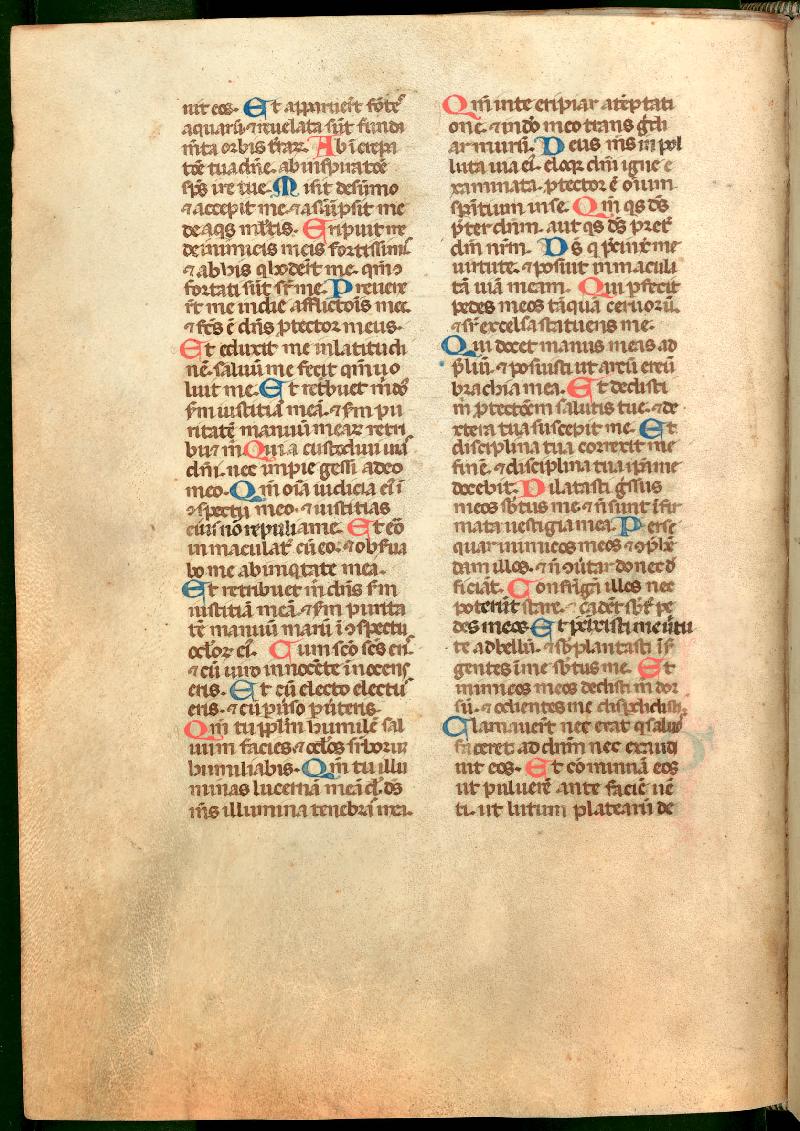 uit eos. Et apparuert fōtes
aquarū. ⁊ reuelata sūt funda
mēta orbis t̄raꝝ. Ab īcrepa
tōe tua dn̄e. ab inspiratōe
sp̄s ire tue. Misit de sūmo
⁊ accepit me. ⁊ assūpsit me
de aqs ml̄tis. Eripuit me
de inimicis meis fortissimis
⁊ ab his q̄ hoderūt me. qm̄ ꝯ
fortati sūt sr̄ me. Preuene
rt̄ me in die afflictōis mee.
⁊ fc̄s ē dn̄s ꝓtector meus.
Et eduxit me in latitudi
nē. saluū me fecit qm̄ uo
luit me. Et retbuet m̄ dn̄s
s̄m iustitiā meā. ⁊ s̄m pu
ritatē manuū meaꝝ retri
buet m̄. Quia custodiui uias
dn̄i. nec impie gessi a deo
meo. Qm̄ oīa iudicia eī ī
ꝯspectu meo. ⁊ iustitias
eius nō repuli a me. Et eō
inmaculat cū eo. ⁊ obs̄ua
bo me ab iniqtate mea.
Et retribuet m̄ dn̄s s̄m
iustitiā meā. ⁊ s̄m purita
tē manuū mearū ī ꝯspectu
oclor eī. Cum sc̄o sc̄s eris
⁊ cū uiro innocēte īnocens
eris. Et cū electo electus
eris. ⁊ cū puīso puīteris.
Qm̄ tu ppl̄m humilē sal
uum facies ⁊ oclos suꝑborū
humiliabis. Qm̄ tu illu
minas lucernā meā dn̄. ds̄
ms̄ illumina tenebras meas.
Qm̄ in te eripiar a tēptati
one. ⁊ in dō meo transḡdi
ar murū. Deus ms̄ inpol
luta uia eī. eloq̄ dn̄i igne e
xaminata. ꝓtector ē oīum
sꝑātium in se. Qm̄ qs ds̄
p̄ter dn̄m. aut qs ds̄ p̄ter
dm̄ nrm̄. Ds̄ q p̄cinxit me
uirtute. ⁊ posuit inmacula
tā uiā meam. Qui ꝑfecit
pedes meos tāquā ceruorū.
⁊ sr̄ excelsa statuens me.
Qui docet manus meas ad
p̄liū. ⁊ posuisti ut arcū ereū
brachia mea. Et dedisti
m̄ ꝓtectōem salutis tue. ⁊ de
xtera tua suscepit me. Et
disciplina tua correxit me
in finē. ⁊ disciplina tua ip̄a me
docebit. Dilatasti g̅ssus
meos sb̄tus me. ⁊ n̄ sunt īfir
mata uestigia mea. Perse
quar inimicos meos ⁊ ꝯp̄hē
dam illos. ⁊ n̄ ꝯūtar donec d̄
ficiāt. Confrīgā illos nec
poterūt stare. ⁊ cadēt sb̄t̄ pe
des meos. Et p̄cinxisti me uirtu
te ad bellū. ⁊ sb̄plantasti īs̄
gentes ī me sb̄tus me. Et
inimicos meos dedisti m̄ dor
sū. ⁊ odientes me disꝑdidisti.
Clamauert nec erat q saluos
faceret ad dn̄m nec exaudi
uit eos. Et cōminuā eos
ut puluerē ante faciē uē
ti. ut lutum platearū de